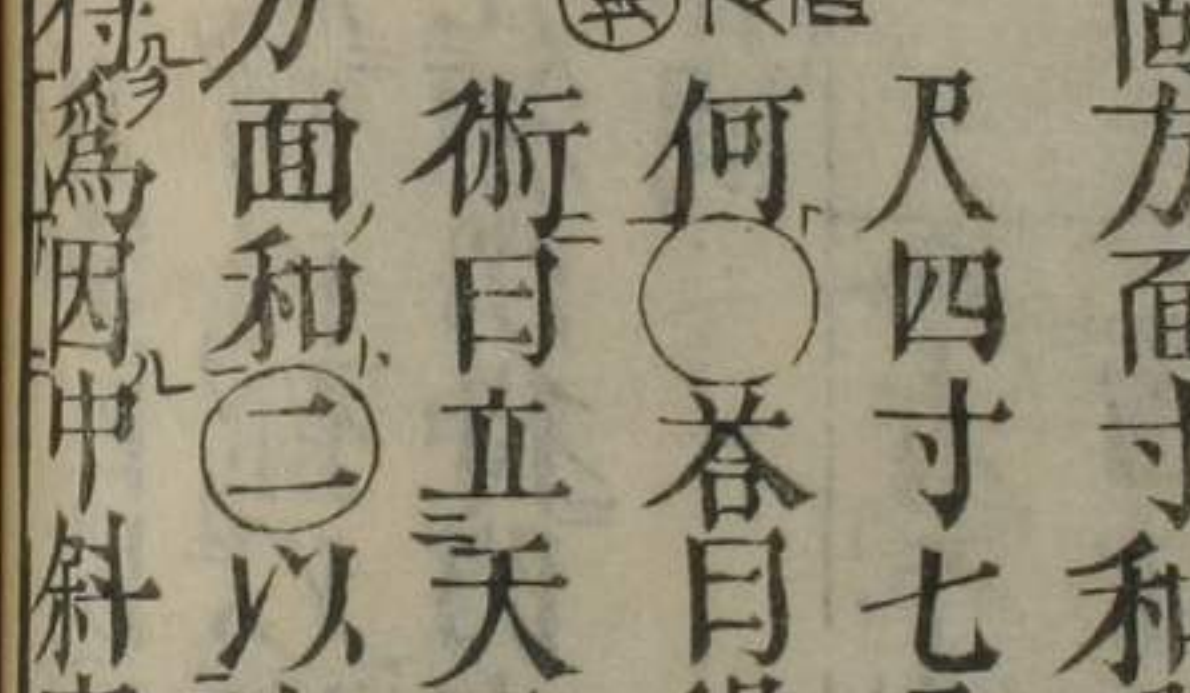 方面寸和
尺四寸七
何〇荅曰
術曰立天
方面和二以
得爲因中斜